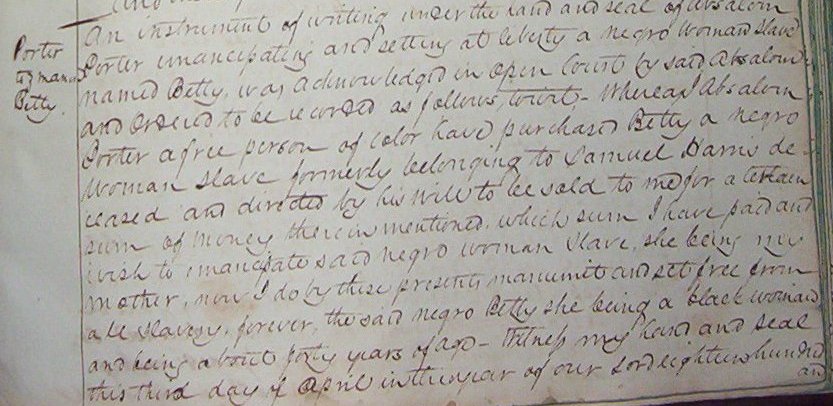 An instrument of writing under the hand and seal of Absalom
Porter emancipating and setting at liberty a negro woman slave
named Betty, was acknowledged in open Court by said Absalom
and ordered to be recorded as follows, towit - Whereas I Absalom
Porter a free person of color have purchased Betty a negro
Woman slave formerly belonging to Samuel Harris de-
ceased and directed by his will to be sold to me for a certain
sum of money therein mentioned, which sum I have paid and
wish to emancipate said negro woman slave, she being my
mother, now I do by these presents manumit and set free from
all slavery, forever, the said negro Betty she being a black woman
and being about forty years of age - Witness my hand and seal
this third day of April in the year of our Lord eighteen hundred
and
Porter
to man
Betty